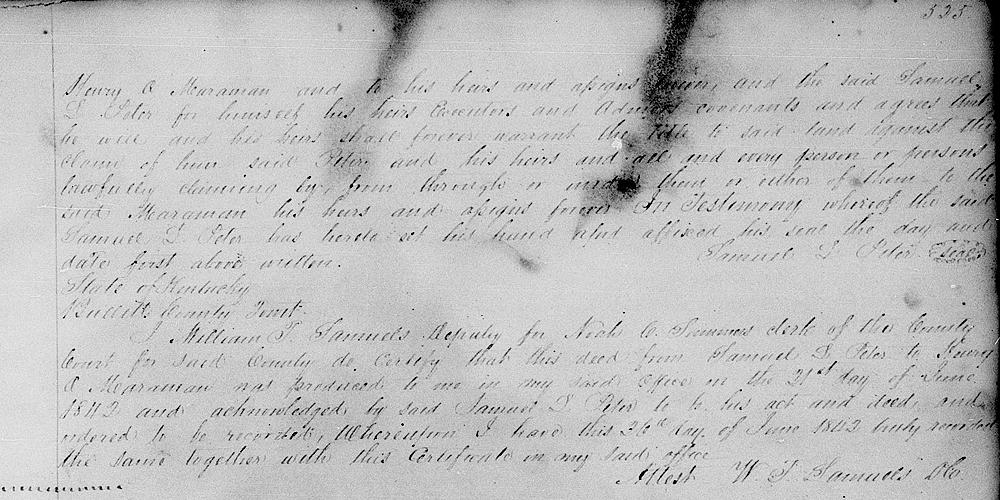 535
Henry C Maraman and to his heirs and assigns and the said Samuel
L Peter for himself his heirs Executors and Admrs covenants and agrees that
he will and his heirs shall forever warrant the title to said land against the
claim of him said Peter and his heirs and all and every person or persons
lawfully claiming by, from through or under them or either of them to the
said Maraman his heirs and assigns forever In Testimony whereof the said
Samuel L Peter has hereto set his hand and affixed his seal the day and
date first above written. Samuel L Peter Seal
State of Kentucky
Bullitt County Sct.
I, William T. Samuels Deputy for Noah C. Summers clerk of the County
Court for said County do Certify that this deed from Samuel L Peter to Henry
C Maraman was produced to me in my said Office on the 21st day of June
1842 and acknowledged by said Samuel L Peter to be his act and deed, and
ordered to be recorded, Whereupon I have this 26th day of June 1842 truly recorded
the same together with this Certificate in my said office
Attest W. T. Samuels DC